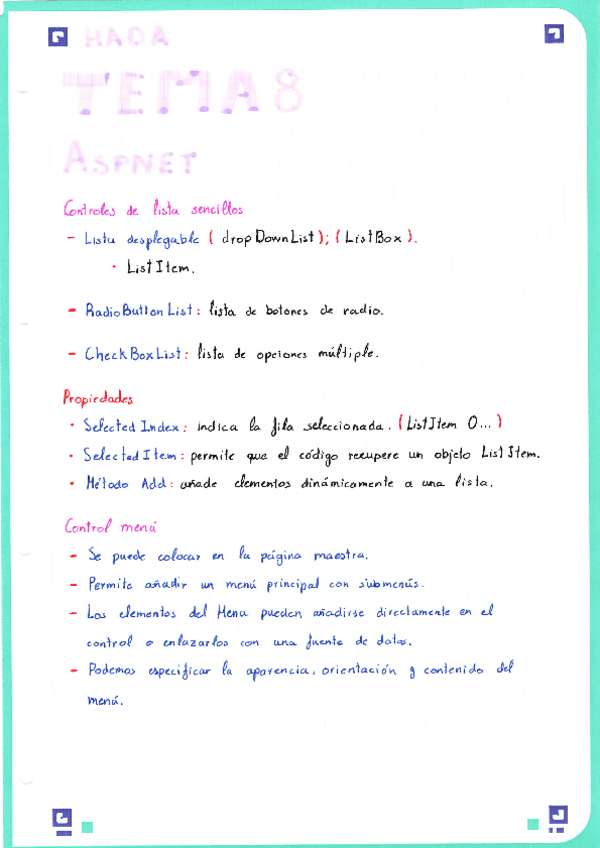 HADA
TEMA 8
ASPNET
Controles de lista sencillos
- Lista desplegable ( dropDownList ); ( ListBox ).
· ListItem.
- RadioButtonList: lista de botones de radio.
- CheckBoxList: lista de opciones múltiple.
Propiedades
· Selected Index: indica la fila seleccionada. (ListItem 0...)
· SelectedItem: permite que el código recupere un objeto ListItem.
· Método Add: añade elementos dinámicamente a una lista.
Control menú
- Se puede colocar en la página maestra.
- Permite añadir un menú principal con submenús.
- Los elementos del Menu pueden añadirse directamente en el
control o enlazarlos con una fuente de datos.
- Podemos especificar la aparencia, orientación y contenido del
menú.